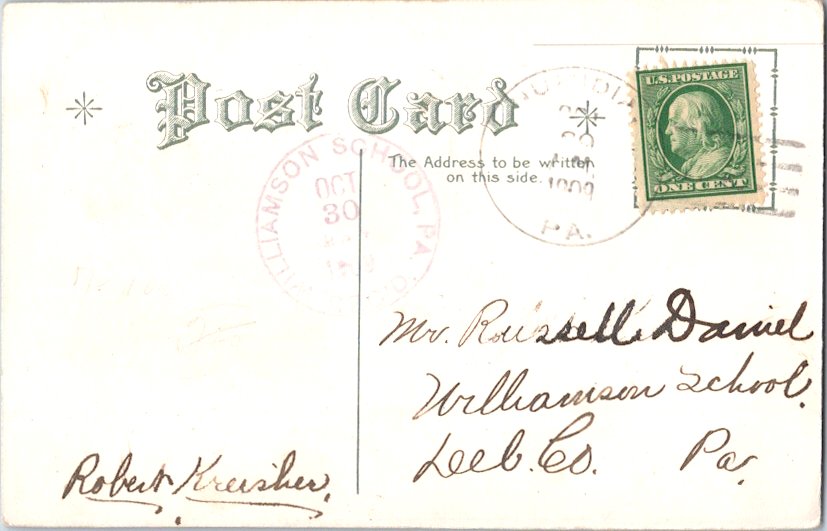 Post Card
The Address to be written
on this side.
U.S. POSTAGE
ONE CENT
PA.
WILLIAMSON SCHOOL, PA
OCT
30
Mr. Russell Daniel
Williamson School.
Del. Co. Pa.
Robert Kreisher.